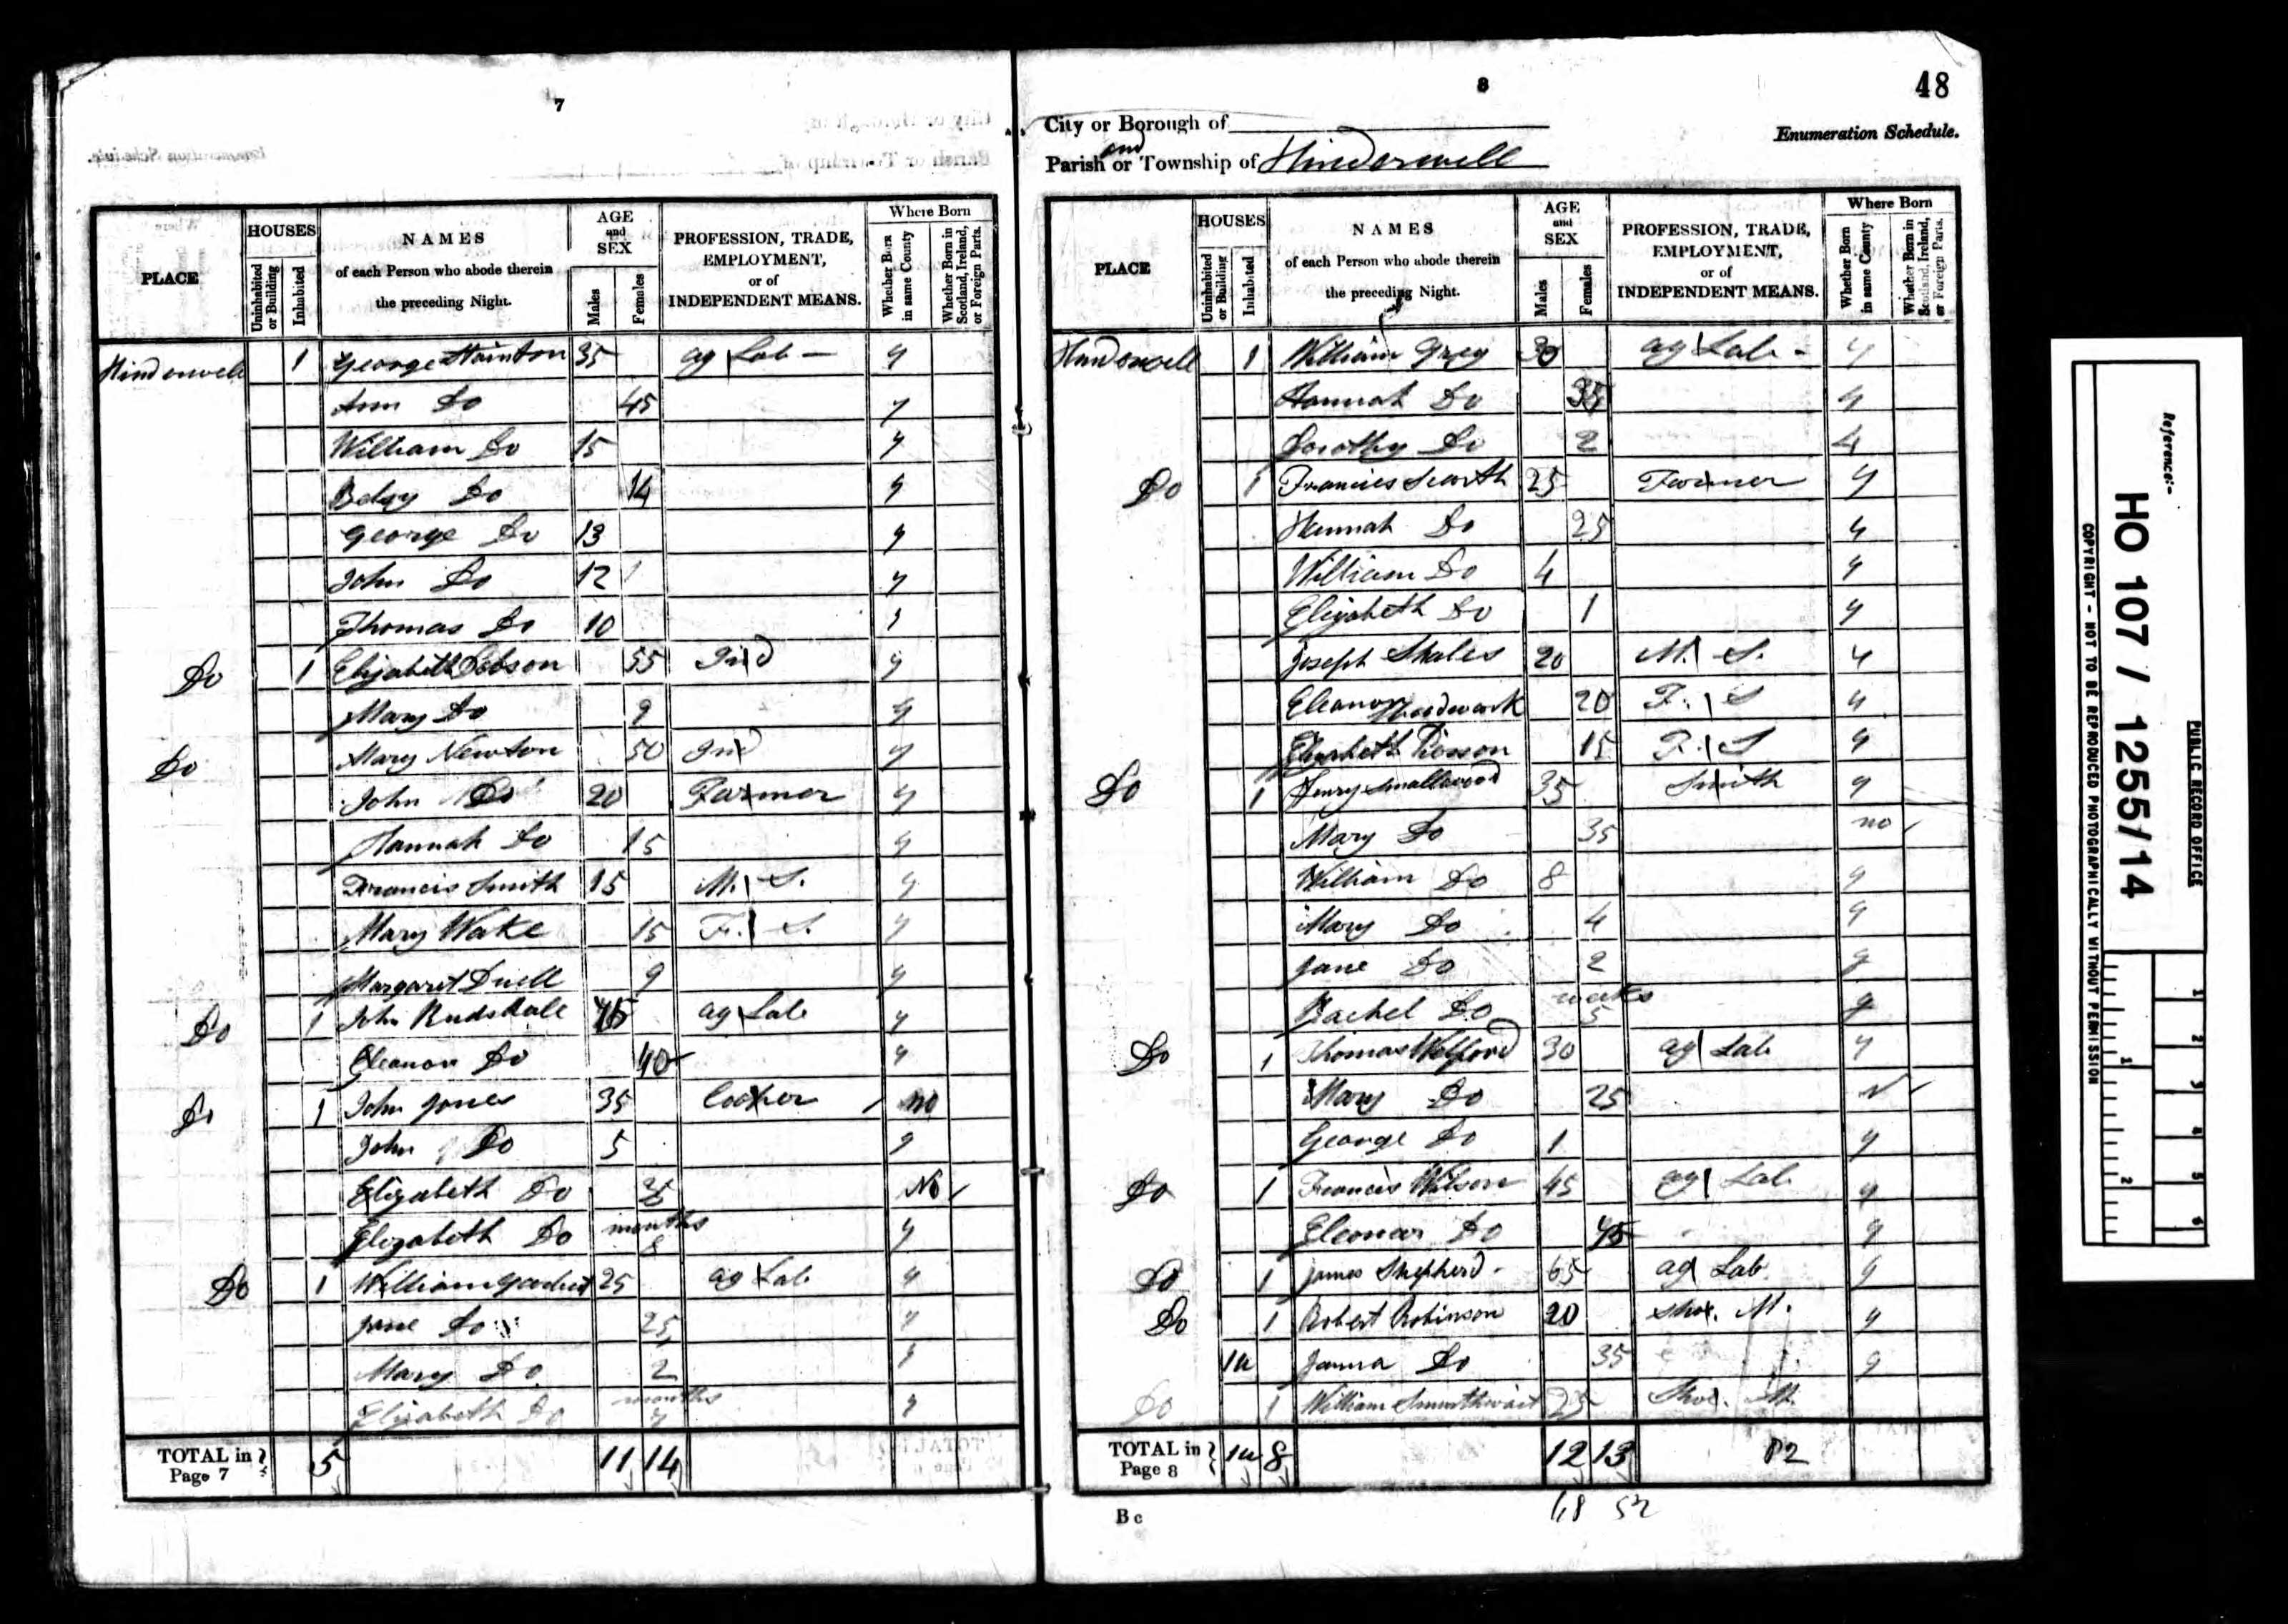 7
PLACE
HOUSES
Uninhabited or Building
Inhabited
NAMES
of each Person who abode therein
the preceding Night.
AGE
and
SEX
Males
Females
PROFESSION, TRADE,
EMPLOYMENT,
or of
INDEPENDENT MEANS.
Where Born
Whether Born in same County
Whether Born in Scotland, Ireland, or Foreign Parts.
Hinderwell 1 George Stainton 35 ag Lab y
Ann Do 45 y
William Do 15 y
Betsy Do 14 y
George Do 13 y
John Do 12 y
Thomas Do 10 y
Do 1 Elizabeth Dobson 55 Ind y
Mary Do 9 y
Do Mary Newton 50 Ind y
John Do 20 Farmer y
Hannah Do 15 y
Francis Smith 15 M. S. y
Mary Wake 15 F. S. y
Margaret Duell 9 y
Do 1 John Rudsdale ag Lab y
Eleanor Do 40 y
Do 1 John Jones 35 no
John Do 5 y
Elizabeth Do No
Elizabeth Do months 8 y
Do 1 William 25 ag Lab y
Jane Do 25 y
Mary Do 2 y
Elizabeth Do months y
TOTAL in Page 7 5 11 14
8
48
City or Borough of
Enumeration Schedule.
and
Parish or Township of Hinderwell
PLACE
HOUSES
Uninhabited or Building
Inhabited
NAMES
of each Person who abode therein
the preceding Night.
AGE
and
SEX
Males
Females
PROFESSION, TRADE,
EMPLOYMENT,
or of
INDEPENDENT MEANS.
Where Born
Whether Born in same County
Whether Born in Scotland, Ireland, or Foreign Parts.
Hinderwell 1 William Grey 30 ag Lab y
Hannah Do 35 y
Dorothy Do 2 y
Do 1 Francis Scarth 25 Farmer y
Hannah Do 25 y
William Do 4 y
Elizabeth Do 1 y
Joseph Skales 20 M. S. y
Eleanor 20 F. S y
Elizabeth 15 F. S y
Do 1 Henry Smallwood 35 Smith y
Mary Do 35 no
William Do 8 y
Mary Do 4 y
Jane Do 2 y
Rachel Do weeks 5 y
Do 1 Thomas Welford 30 ag Lab y
Mary Do 25 N
George Do 1 y
Do 1 Francis Wilson 45 ag Lab y
Eleonar Do 45 y
Do 1 James Shepherd 65 ag Lab y
Do 1 Robert Robinson 20 Shoe. M. y
1u Do 35 y
Do 1 William Smurthwait 25 Shoe. M.
TOTAL in Page 8 1u 8 12 13 82
B c
68 52
Reference:-
HO 107 / 1255/14
PUBLIC RECORD OFFICE
COPYRIGHT - NOT TO BE REPRODUCED PHOTOGRAPHICALLY WITHOUT PERMISSION
1
2
3
4
5
6
1
2